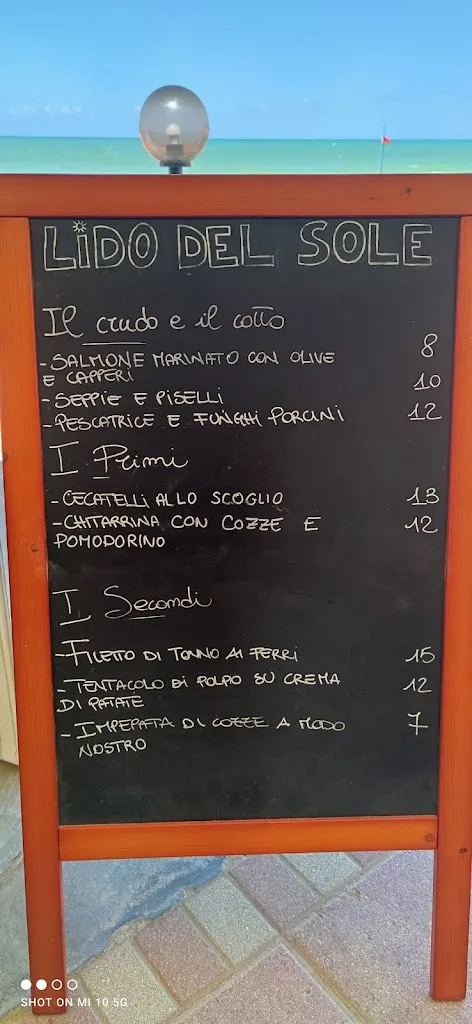 LIDO DEL SOLE
Il crudo e il cotto
- SALMONE MARINATO CON OLIVE 8
E CAPPERI
- SEPPIE E PISELLI 10
- PESCATRICE E FUNGHI PORCINI 12
I Primi
- CECATELLI ALLO SCOGLIO 13
- CHITARRINA CON COZZE E 12
POMODORINO
I Secondi
- FILETTO DI TONNO AI FERRI 15
- TENTACOLO DI POLPO SU CREMA 12
DI PATATE
- IMPEPATA DI COZZE A MODO 7
NOSTRO
SHOT ON MI 10 5G